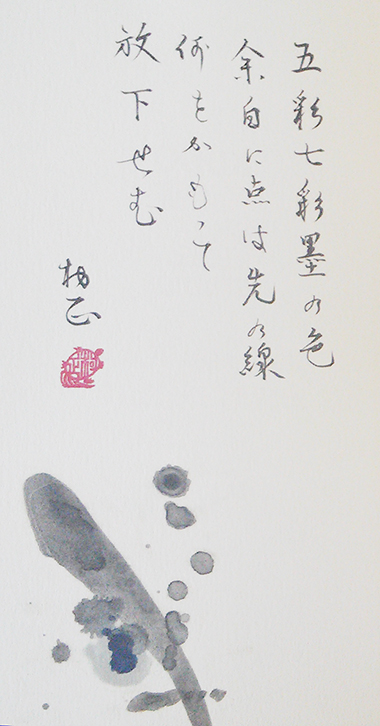 五彩七彩墨の色
余白に点は先の線
何をかもって
放下せむ